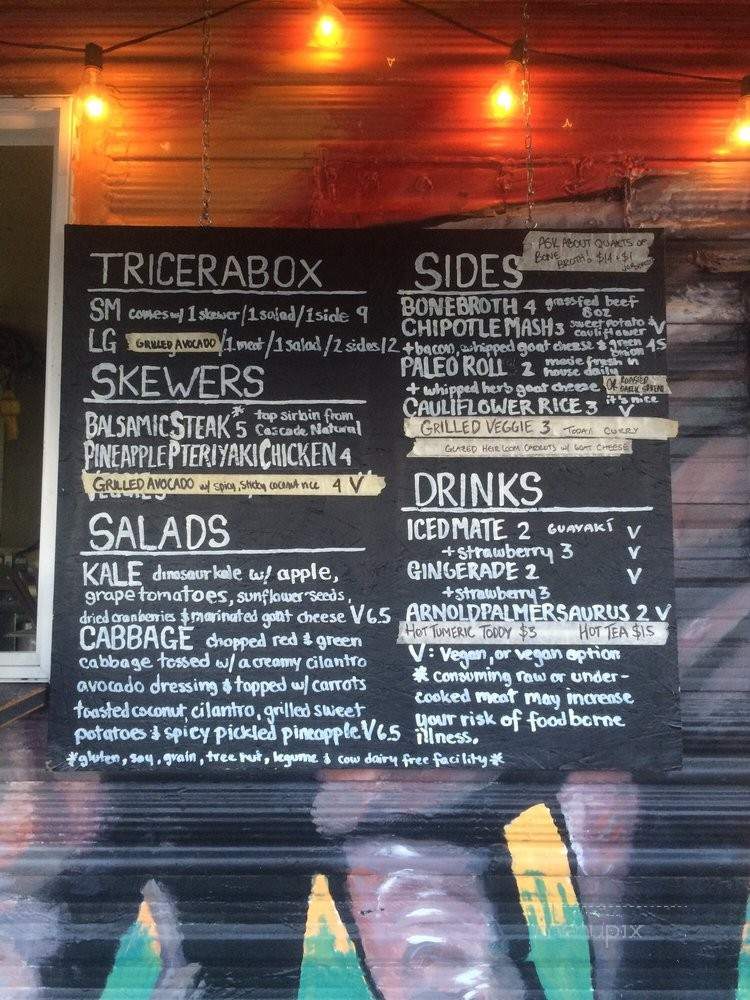 TRICERABOX
SM comes w/ 1 skewer/1 salad/1 side 9
LG GRILLED AVOCADO/1 meat/1 salad/2 sides/2
SKEWERS
BALSAMIC STEAK* 5 top sirloin from
Cascade Natural
PINEAPPLE PTERIYAKI CHICKEN 4
GRILLED AVOCADO w/ spicy, sticky coconut rice 4 V
SALADS
KALE dinosaur kale w/ apple,
grape tomatoes, sunflower seeds,
dried cranberries & marinated goat cheese V 6.5
CABBAGE chopped red & green
cabbage tossed w/ a creamy cilantro
avocado dressing & topped w/ carrots
toasted coconut, cilantro, grilled sweet
potatoes & spicy pickled pineapple V 6.5
*gluten, soy, grain, tree nut, legume & cow dairy free facility*
ASK ABOUT QUARTS OF
BONE BROTH! $14 + $1
SIDES
BONE BROTH 4 grassfed beef
8 oz
CHIPOTLE MASH 3 sweet potato & V
cauliflower
+ bacon, whipped goat cheese & green 4.5
onion
PALEO ROLL 2 made fresh in
house daily
+ whipped herb goat cheese OR ROASTED
GARLIC SPREAD
CAULIFLOWER RICE 3 V it's nice
GRILLED VEGGIE 3 TODAY CURRY
GLAZED HEIRLOOM CARROTS W/ GOAT CHEESE
DRINKS
ICED MATE 2 GUAYAKÍ V
+ strawberry 3 V
GINGERADE 2 V
+ strawberry 3
ARNOLD PALMERSAURUS 2 V
HOT TUMERIC TODDY $3 HOT TEA $1.5
V: Vegan, or vegan option
* consuming raw or under-
cooked meat may increase
your risk of foodborne
illness.